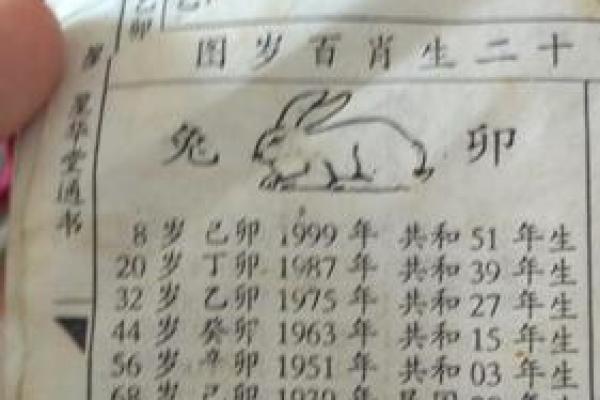 乙卯
图岁百肖生二十
星华堂通书
兔 卯
8 岁 己卯 1999 年 共和 51 年生
20 岁 丁卯 1987 年 共和 39 年生
32 岁 乙卯 1975 年 共和 27 年生
44 岁 癸卯 1963 年 共和 15 年生
56 岁 辛卯 1951 年 共和 03 年生
68 岁 己卯 1939 年 民国 28 年生